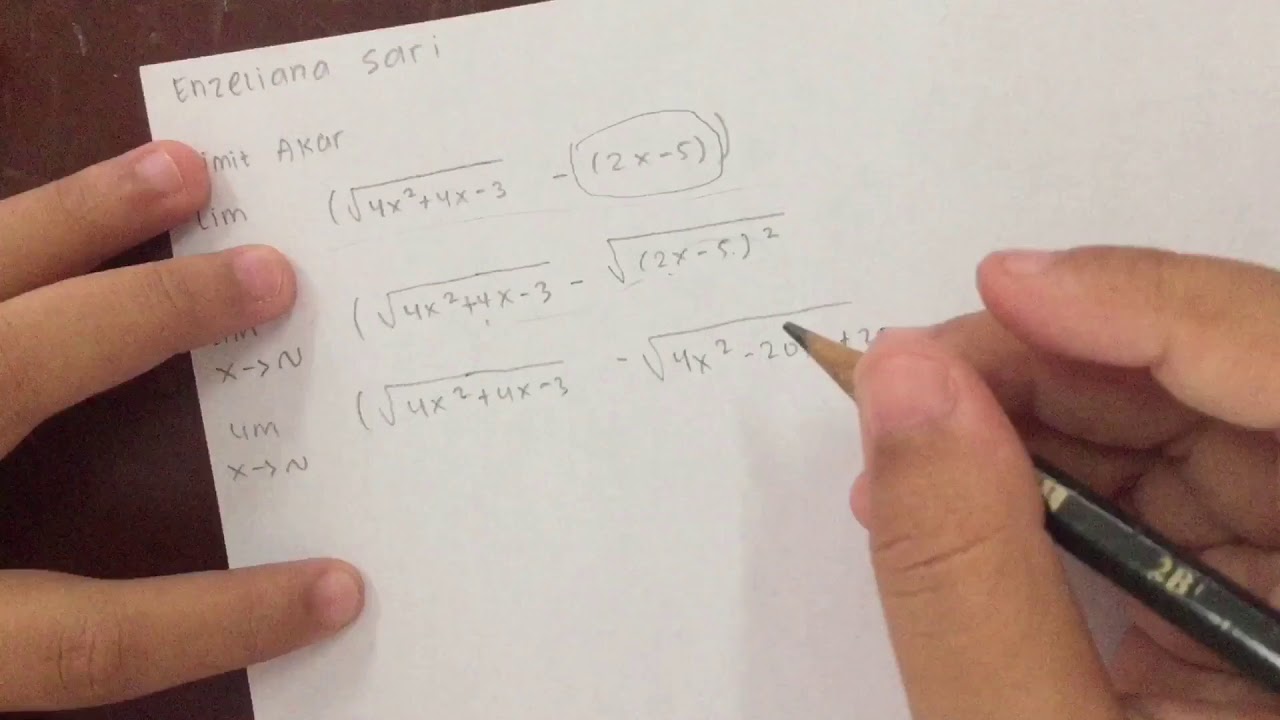 Enzeliana Sari
imit Akar
Lim (√4x²+4x-3 - (2x-5))
(√4x²+4x-3 - √(2x-5)²
x→~
Lim (√4x²+4x-3 - √4x²-20
x→~
2B